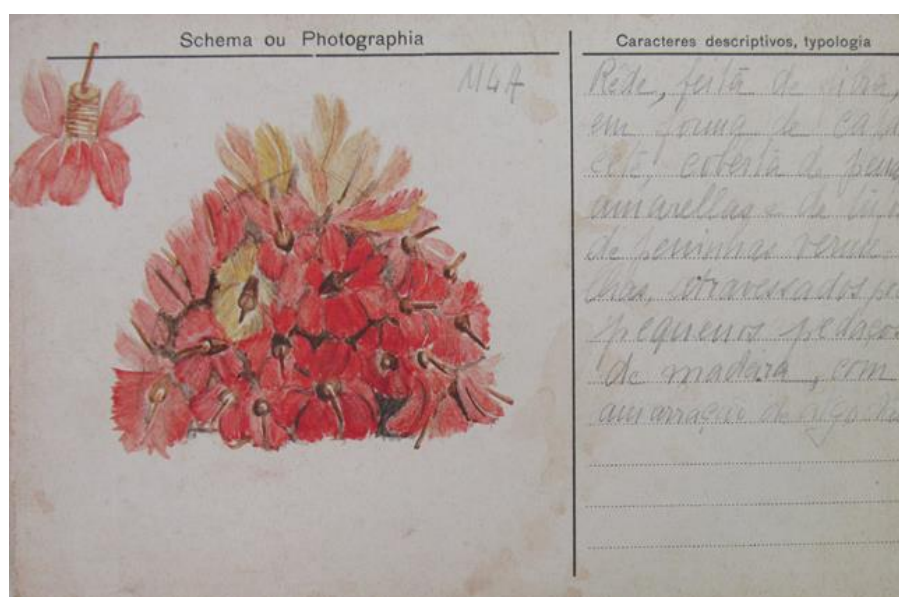 Schema ou Photographia
M4A
Caracteres descriptivos, typologia
Rede, feita de fibra,
em forma de capa
cete, coberta de penn
amarellas e de tufo
de penninhas verme
lhas, atravessados por
pequenos pedaços
de madeira, com
amarração de algodão